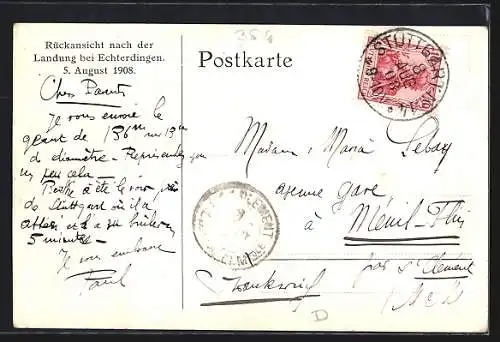 358
Rückansicht nach der
Landung bei Echterdingen.
5. August 1908.
Postkarte
STUTTGART
AUG
08
Chers Parents
Je vous envoie le
géant de 136m sur 13m
de diamètre - Représentez vous
un peu cela -
été le voir près
de Stuttgart où il a
et a brûlé en
5 minutes -
Je vous embrasse
Paul
Madame
avenue Gare
à Ménil-Flin
par St Clément
CLEMENT
Frankreich
D